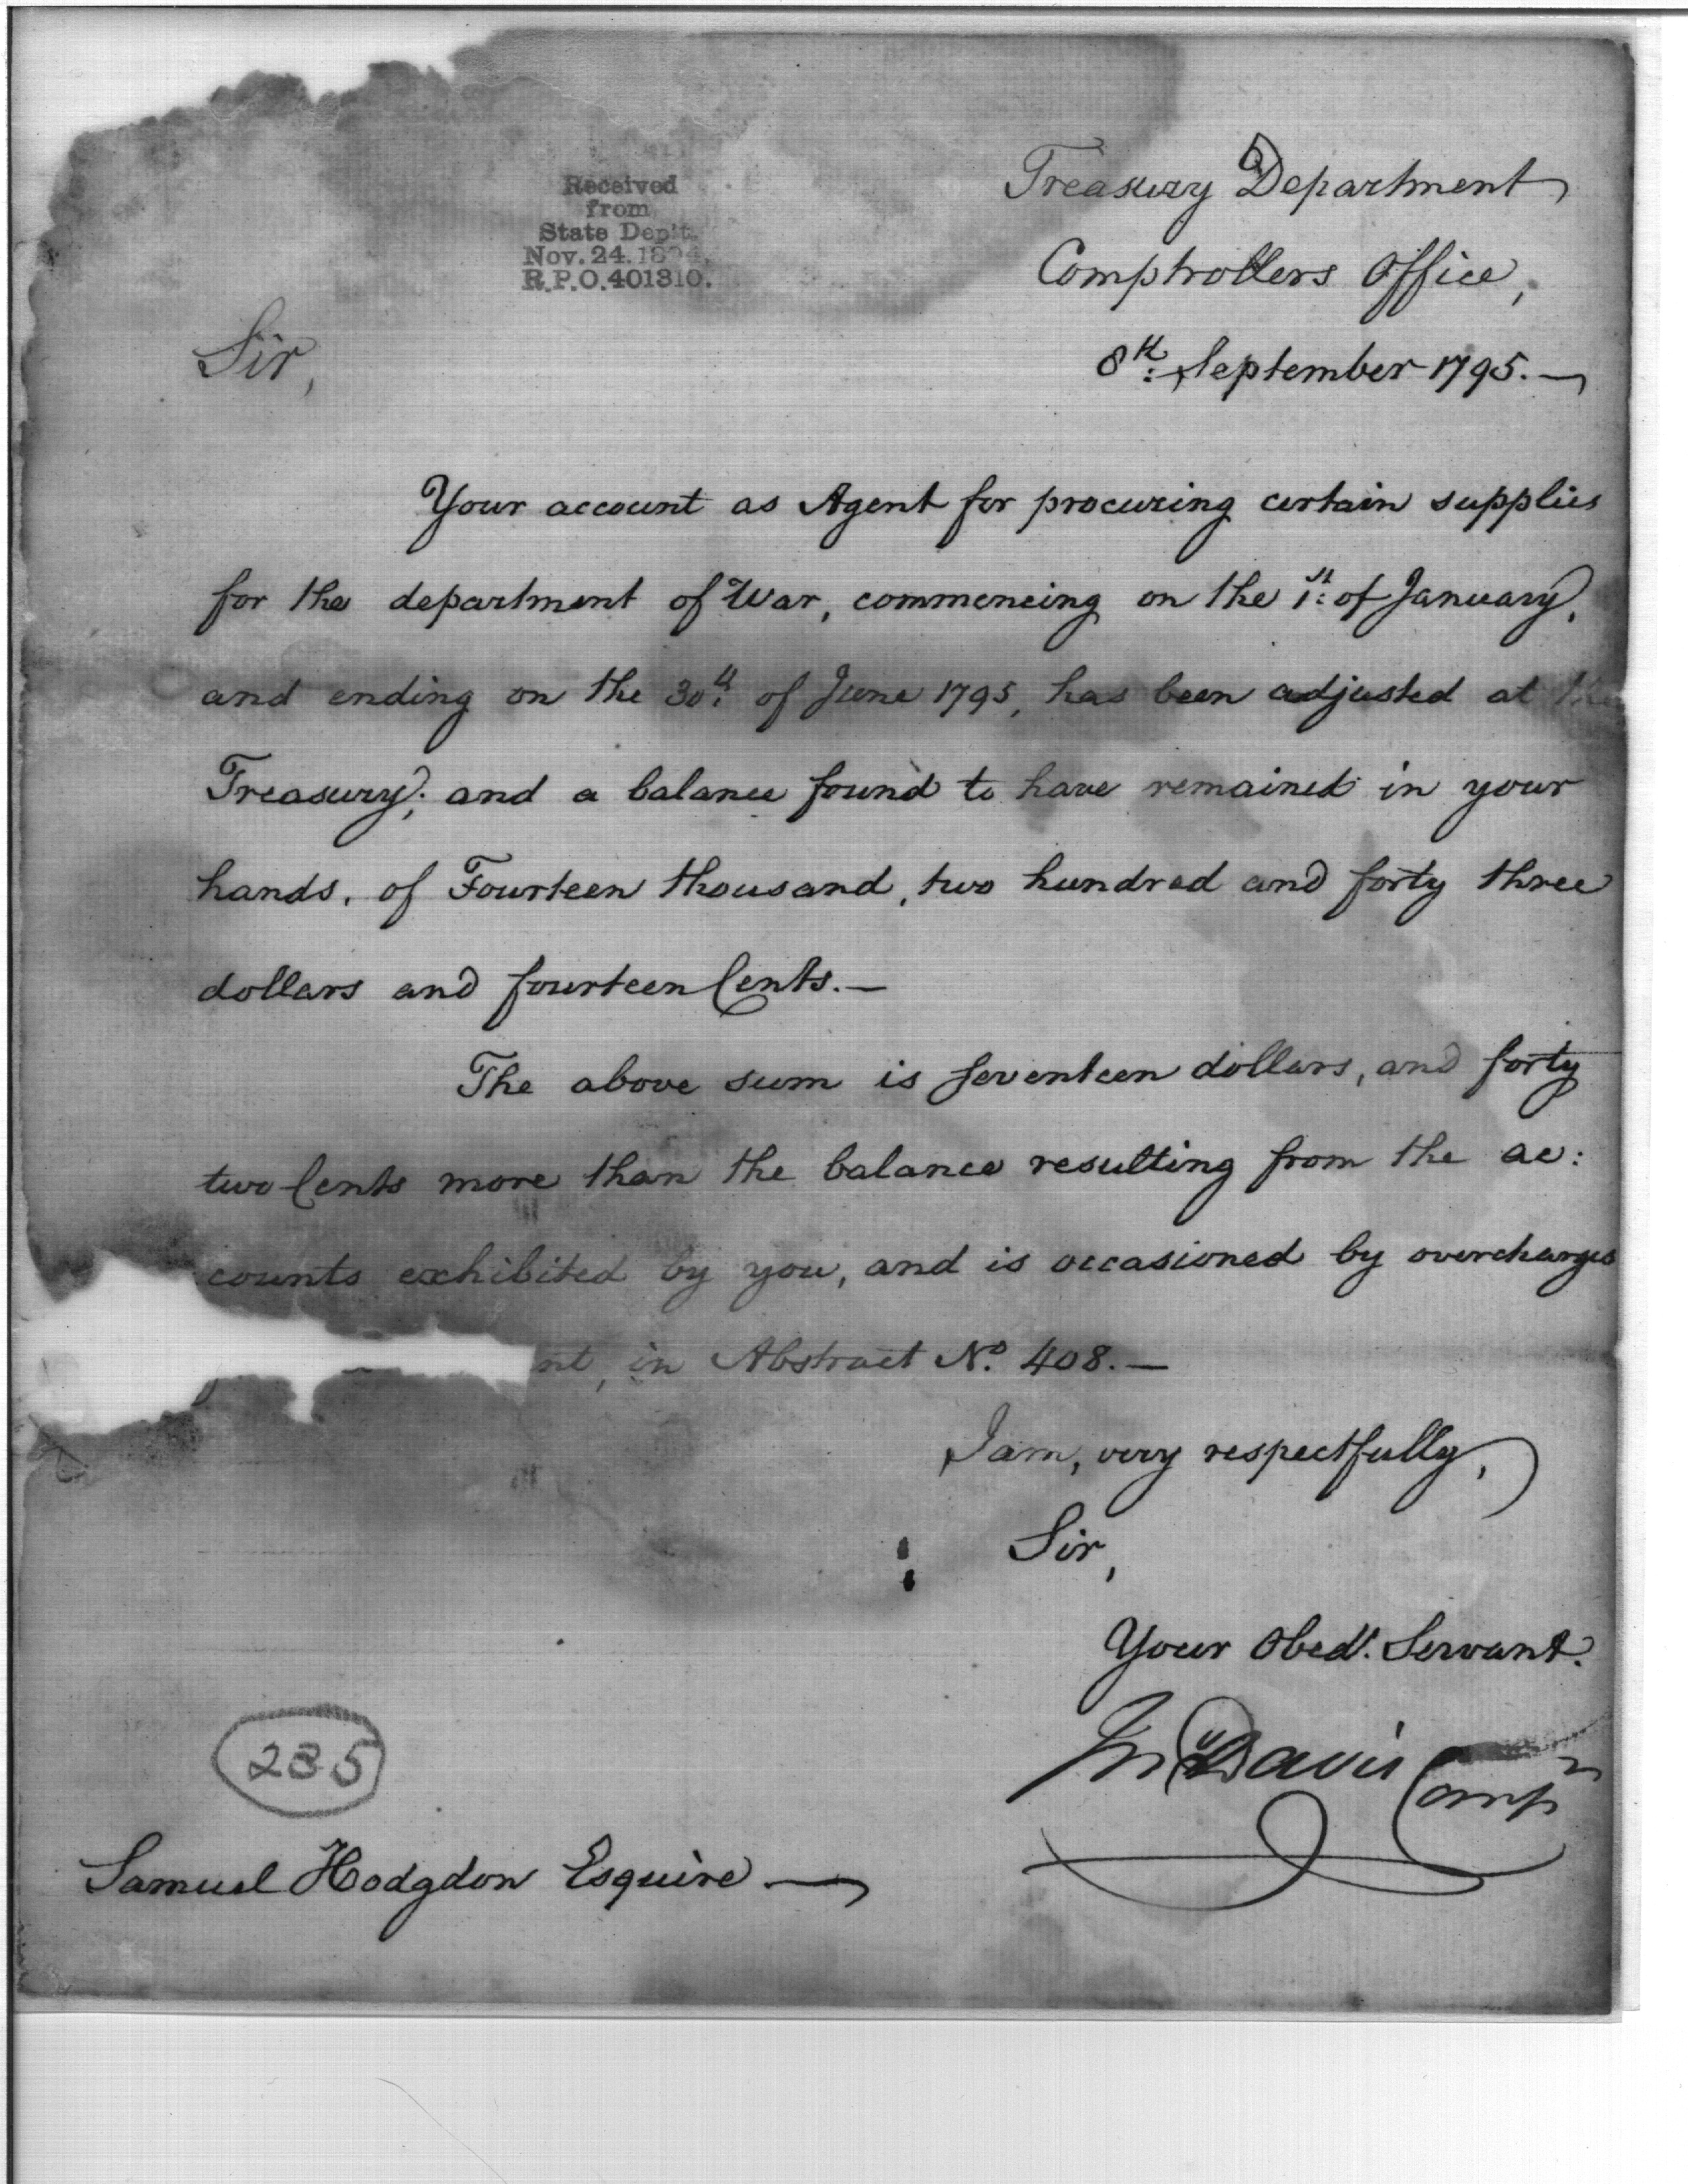 Received
from
State Dep't.
Nov. 24. 1894.
R.P.O. 401310.
Treasury Department
Comptrollers Office,
8th: September 1795.—
Sir,
Your account as Agent for procuring certain supplies
for the department of War, commencing on the 1st: of January,
and ending on the 30th. of June 1795, has been adjusted at the
Treasury; and a balance found to have remained in your
hands, of Fourteen thousand, two hundred and forty three
dollars and fourteen Cents.—
The above sum is seventeen dollars, and forty
two Cents more than the balance resulting from the ac:
counts exhibited by you, and is occasioned by overcharges
nt, in Abstract No. 408.—
I am, very respectfully,
Sir,
Your Obedt. Servant.
Jn Davis Compr
235
Samuel Hodgdon Esquire —